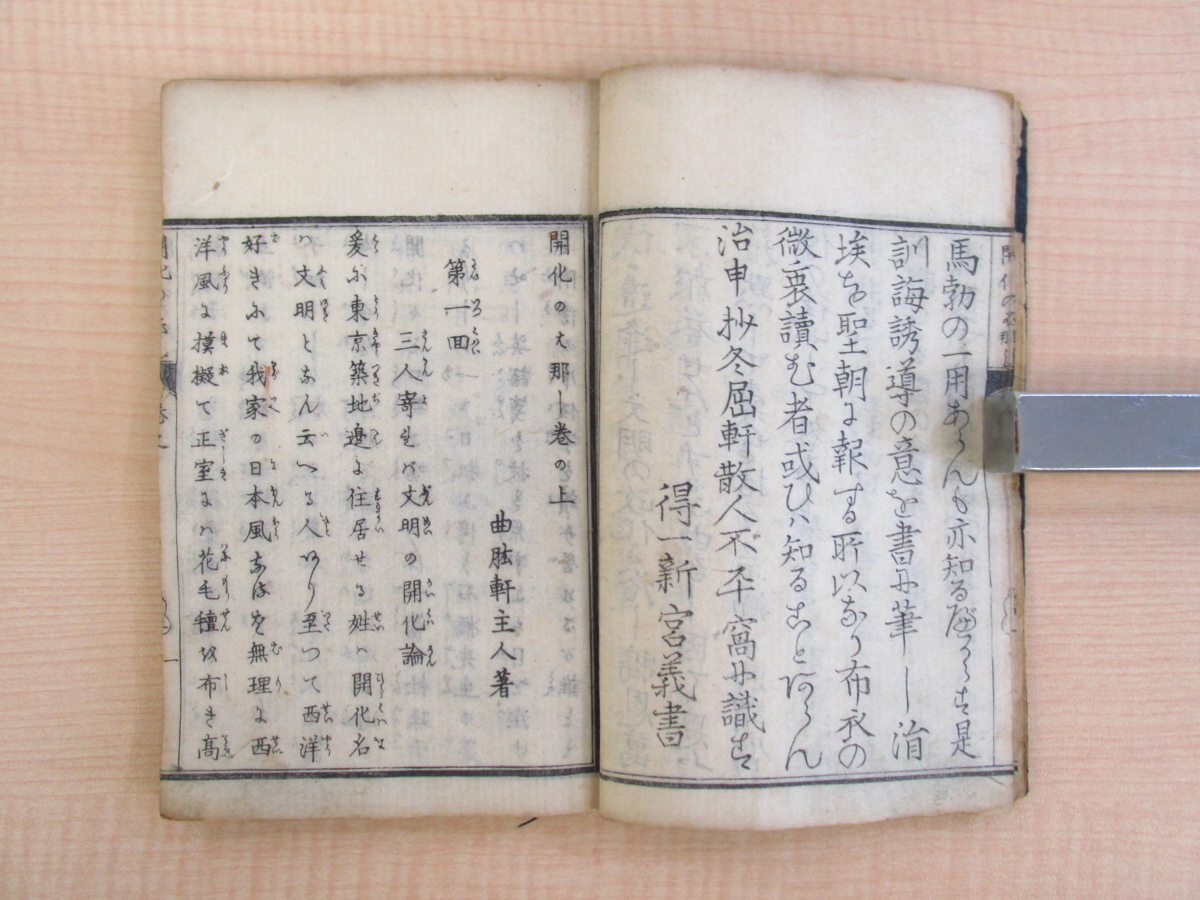 馬勃の一用あらんも亦知る可からす是
訓誨誘導の意を書に筆し涓
埃を聖朝に報する所以なり布衣の
微衷讀む者或ひハ知ることあらん
治申抄冬屈軒散人不平窩に識す
得一新宮義書
開化のは那し卷の上
曲肱軒主人著
第一回
三人寄れハ文明の開化論
爰に東京築地邉に住居せる姓ハ開化名
ハ文明となん云へる人あり至つて西洋
好きにて我家の日本風なるを無理に西
洋風に摸擬て正室にハ花毛氈を布き高